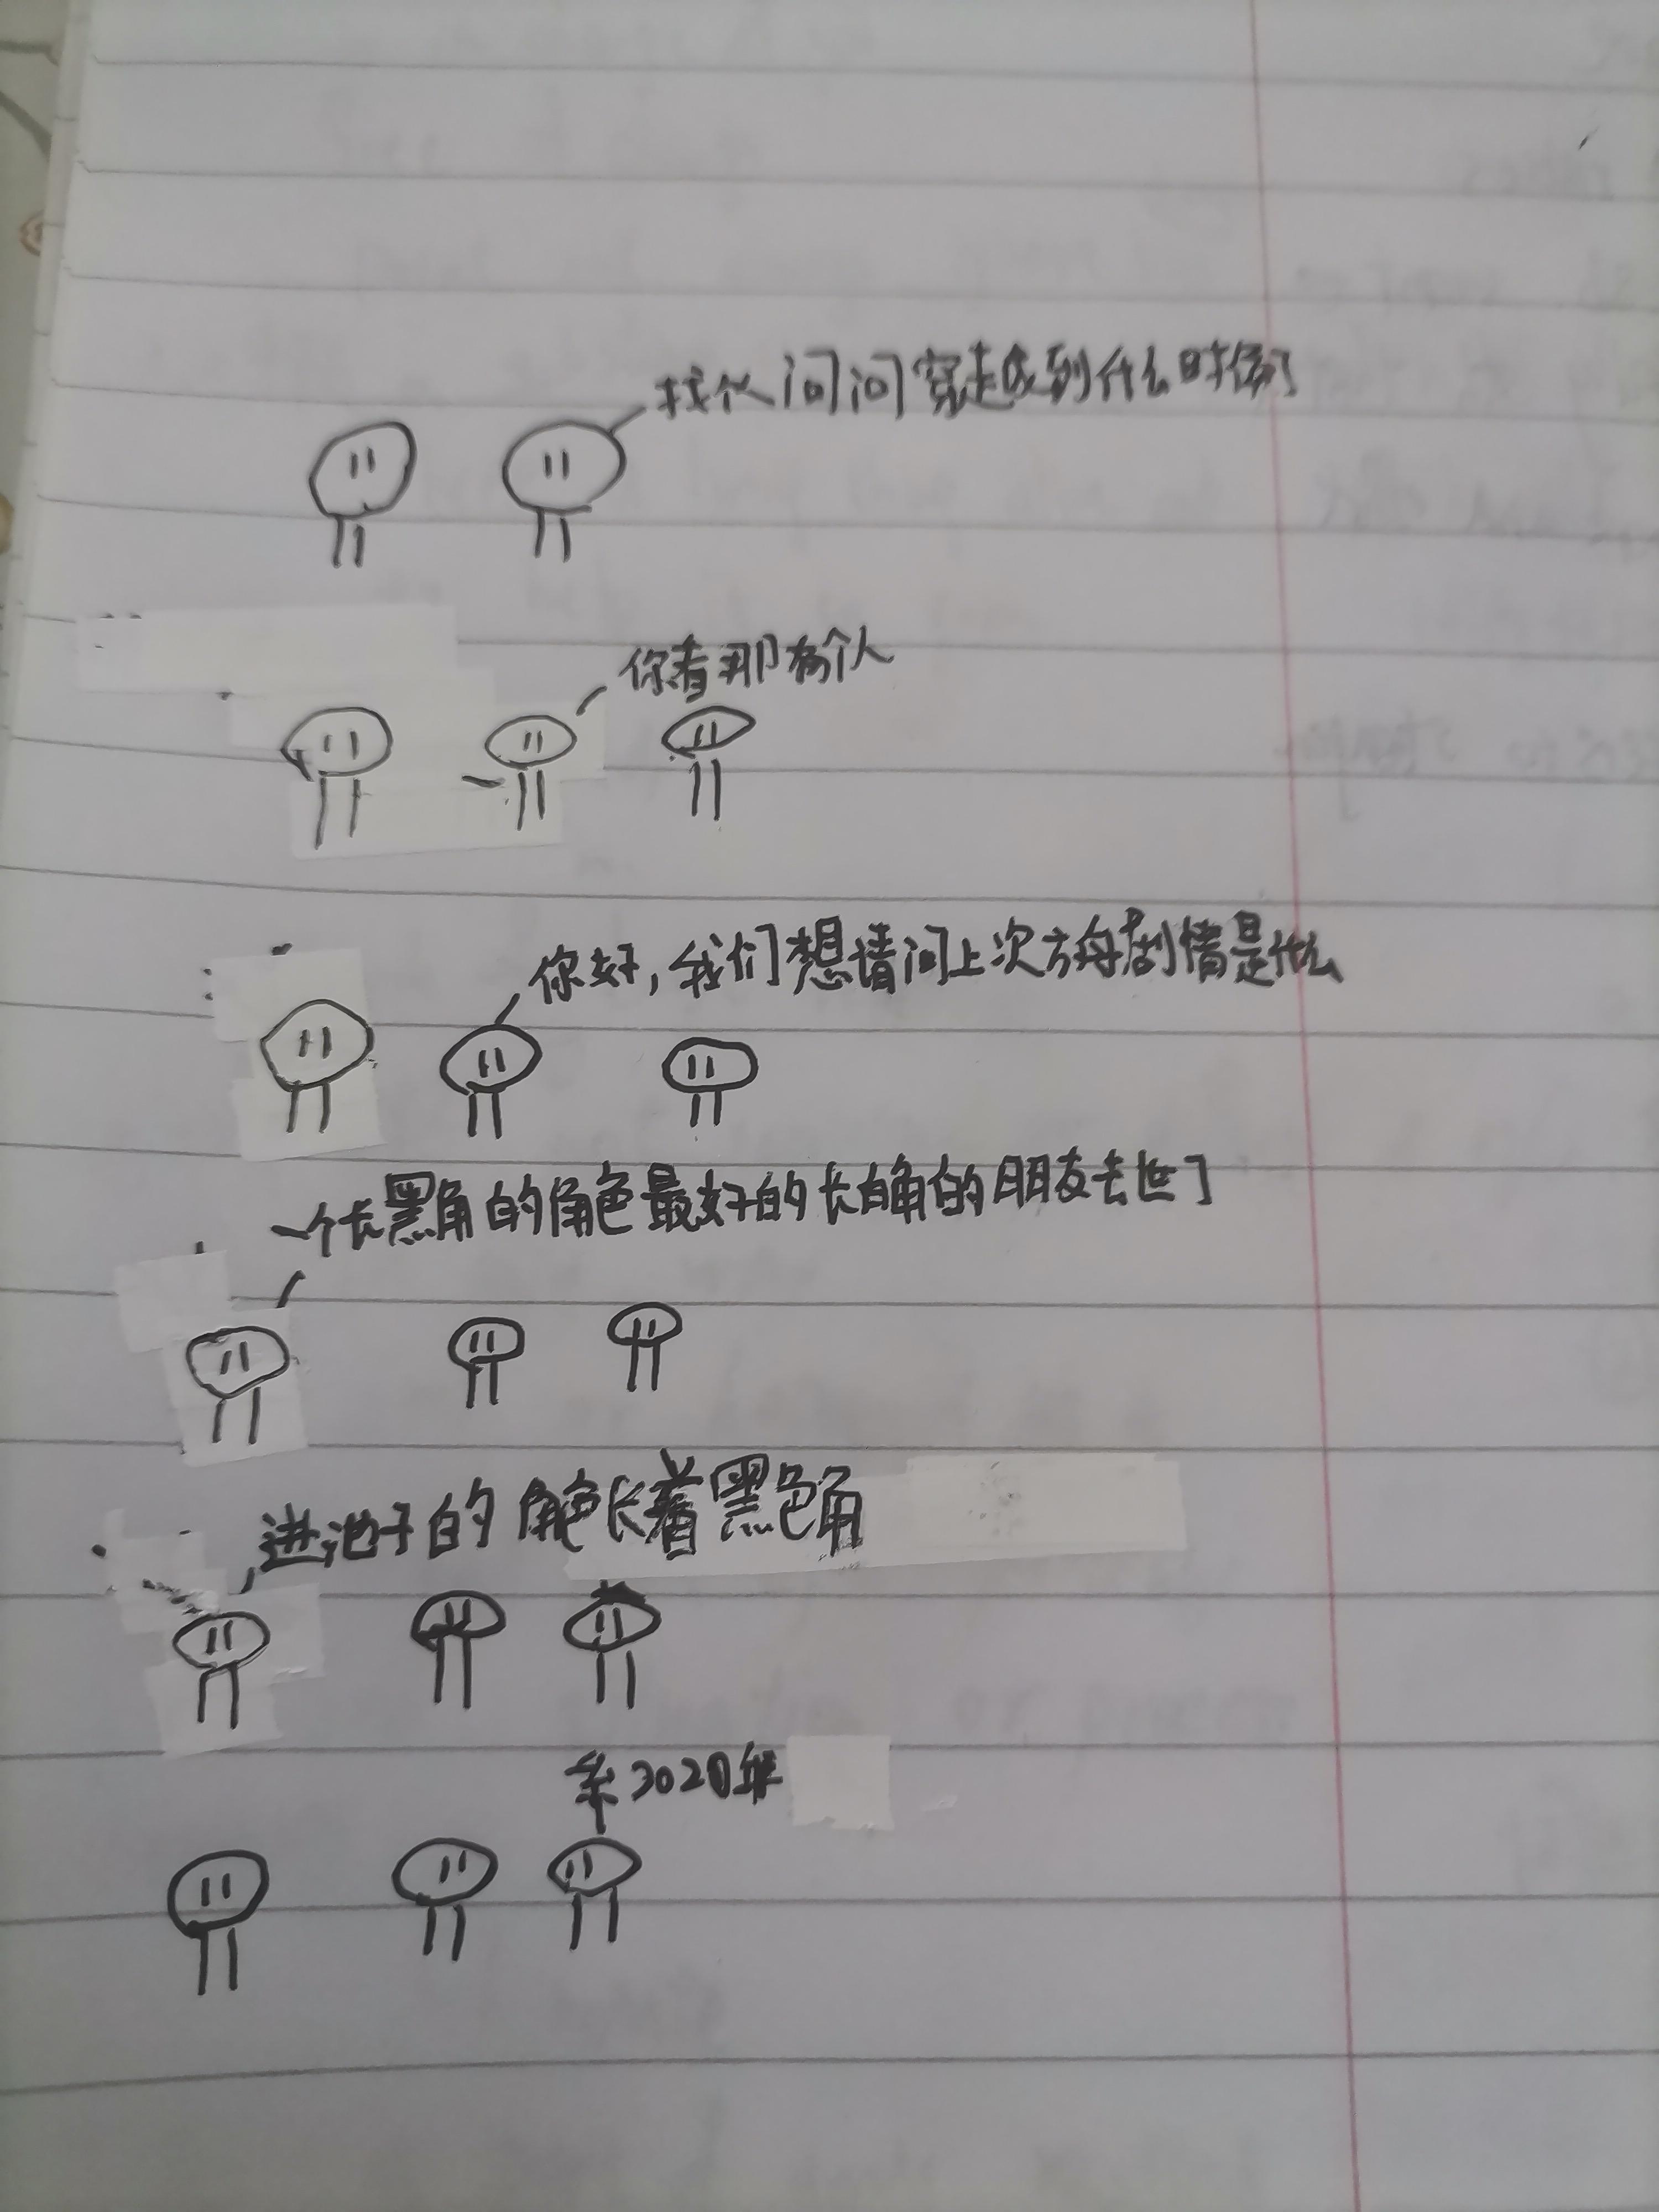 找个人问问穿越到什么时候了
你看那有个人
你好，我们想请问上次方舟剧情是什么
一个长黑角的角色最好的长白角的朋友去世了
进池子的角色长着黑色角
3020年